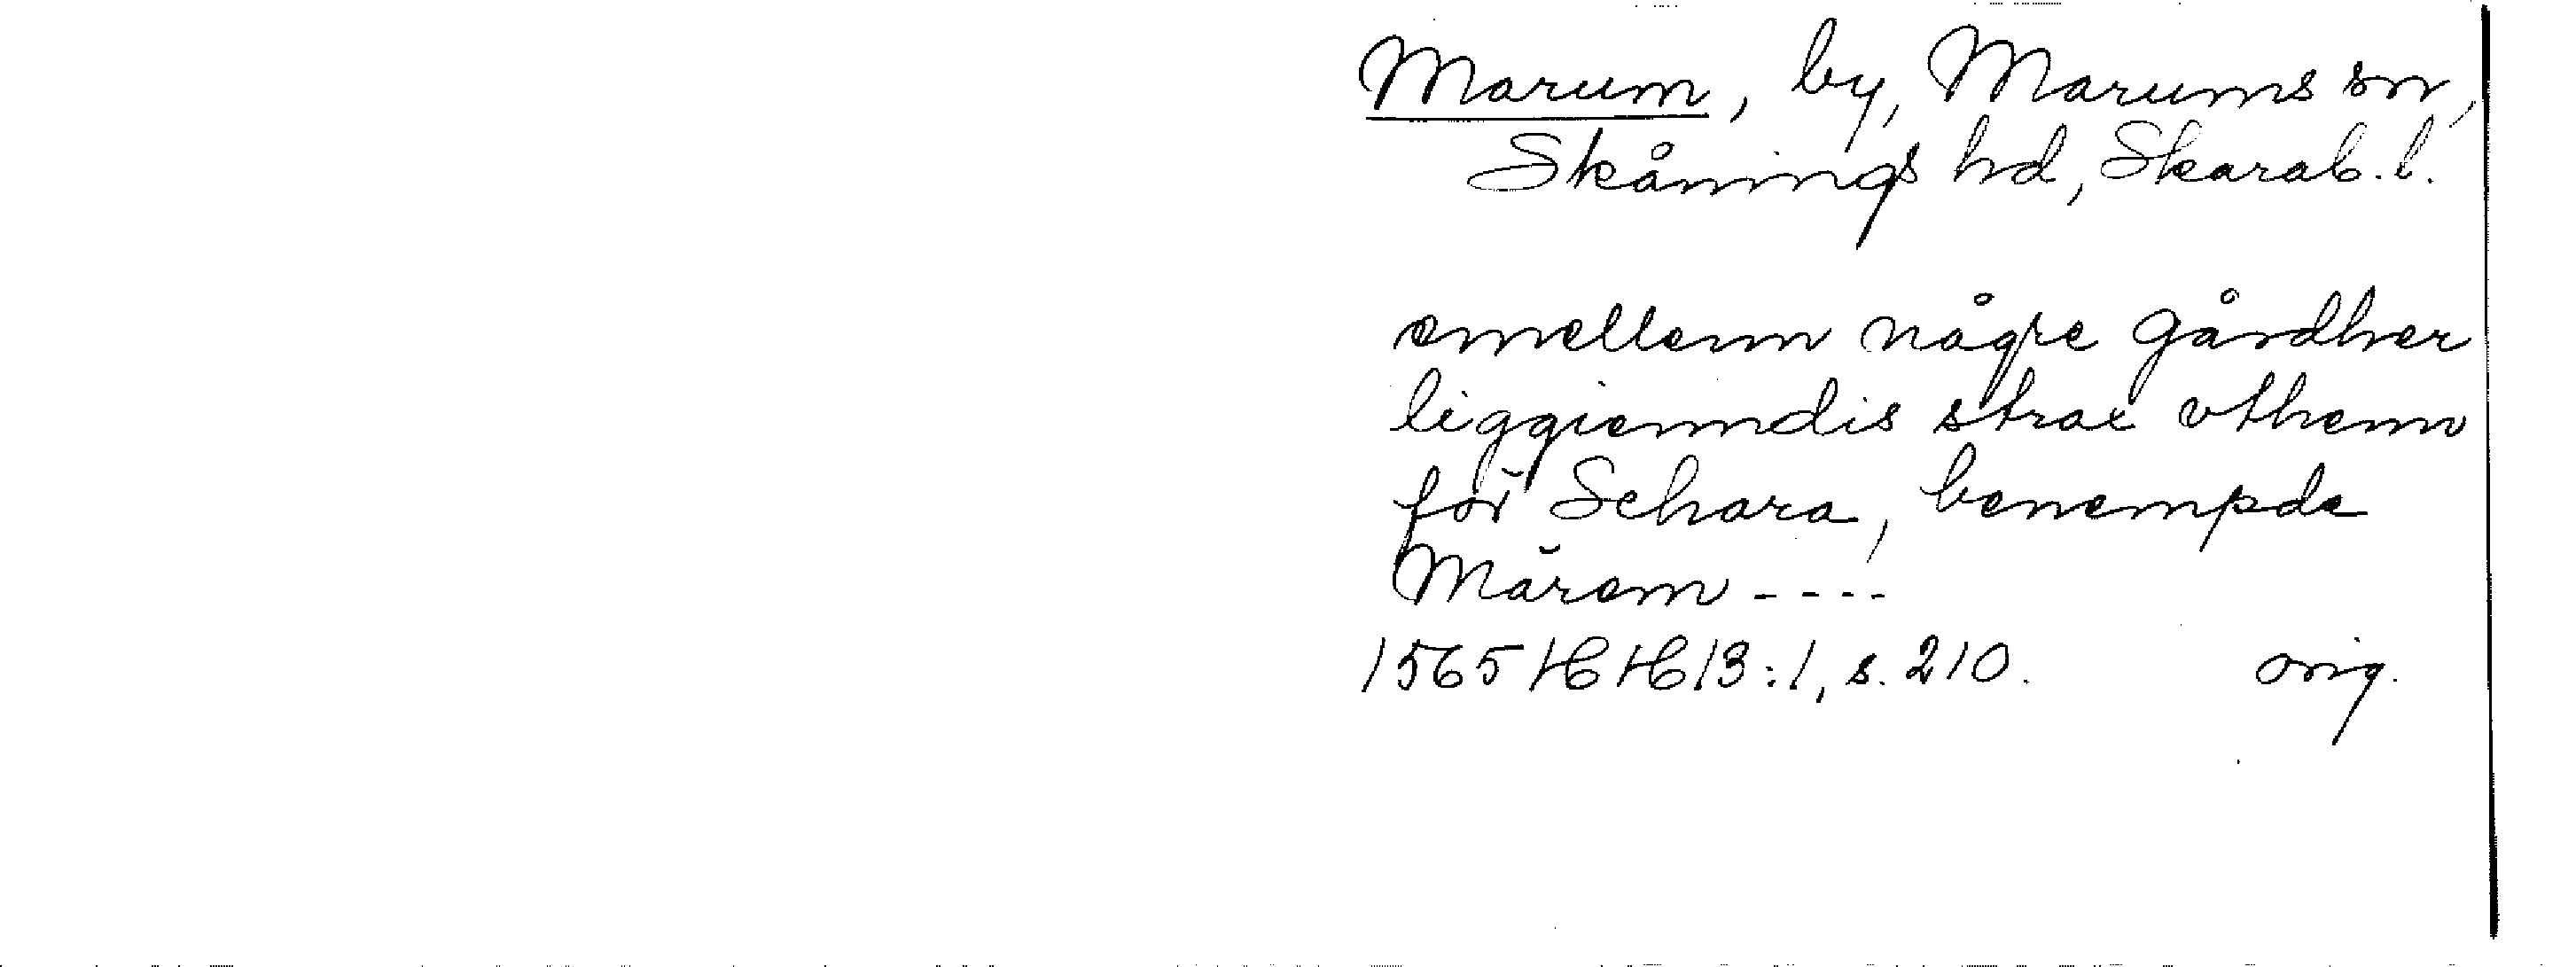 Marum, by, Marums sn,
Skånings hd, Skarab. l.
emellenn någre gårdher
liggienndis strax vthenn
för Schara, benempde
Mărem ----
1565 HH 13:1, s. 210. orig.